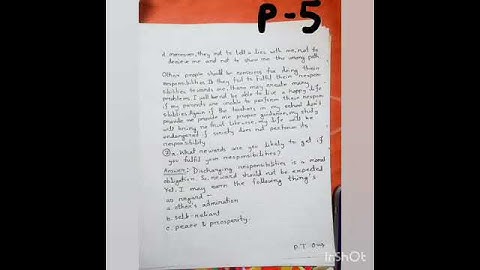 P-5
d. moreover, they not to tell a lies with me, not to
deceive me and not to show me the wrong path.
Other people should be conscious for doing their
responsibilities. If they fail to fulfil their respon
sibilities towards me, there may create many
problems. I will be not be able to live a happy life
if my parents are unable to perform their respon
sibilities. Again if the teachers in my school don't
provide me proper guidance, my study
will bring no fruit. Likewise, my life will be
endangered if society does not perform its
responsibility.
7 a. What rewards are you likely to get if
you fulfil your responsibilities?
Answer: Discharging responsibilities is a moral
obligation. So, reward should not be expected
Yet, I may earn the following thing's
as regard —
a. other's admiration
b. self-reliant
c. peace & prosperity.
P.T. Ous
InShOt